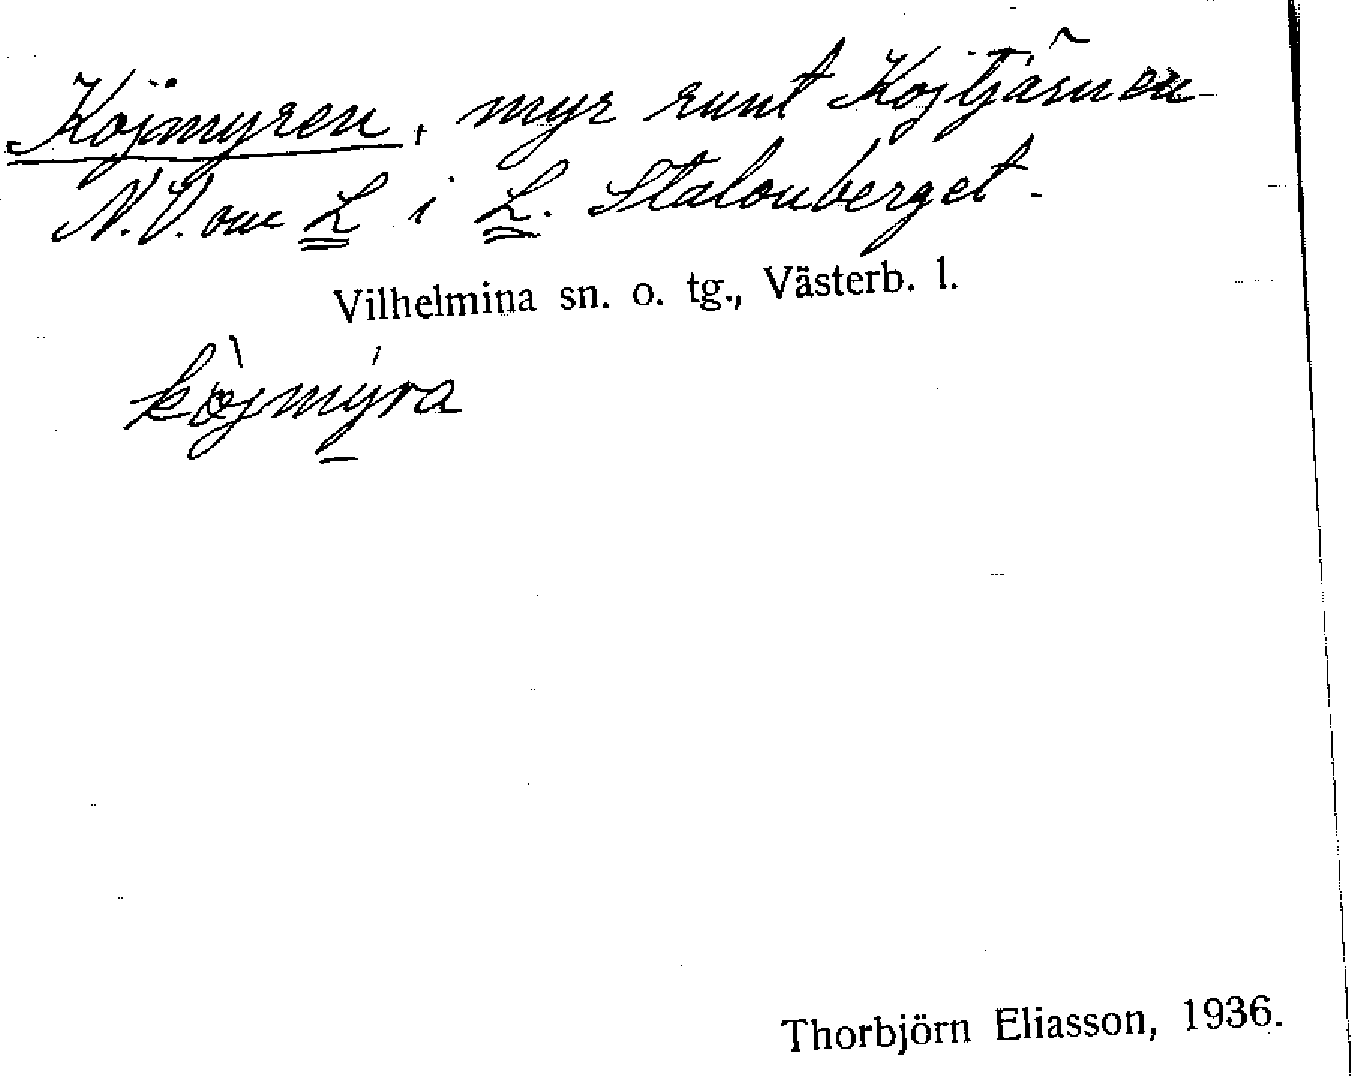 Köjmyren, myr runt Köjtjärnen
N.V. om L i L. Stalonberget.
Vilhelmina sn. o. tg., Västerb. l.
kö̀jmýra
Thorbjörn Eliasson, 1936.